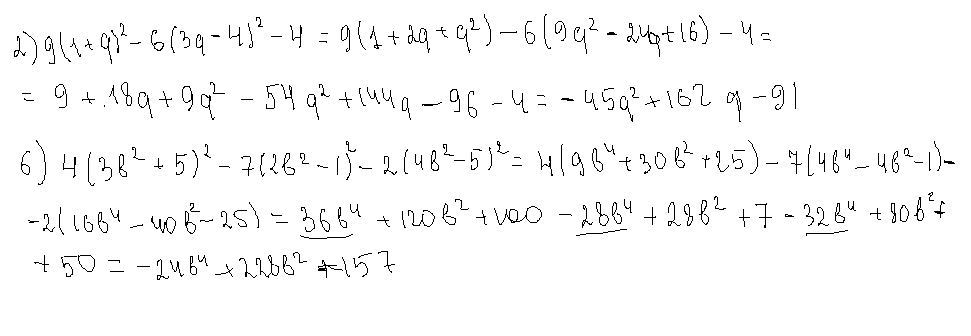 2) 9(1+a)² - 6(3a-4)² - 4 = 9(1+2a+a²) - 6(9a² - 24a+16) - 4 =
= 9 + 18a + 9a² - 54a² + 144a - 96 - 4 = - 45a² + 162 a - 91
б) 4(3b² + 5)² - 7(2b² - 1)² - 2(4b² - 5)² = 4(9b⁴ + 30b² + 25) - 7(4b⁴ - 4b² - 1) -
- 2(16b⁴ - 40b² - 25) = 36b⁴ + 120b² + 100 - 28b⁴ + 28b² + 7 - 32b⁴ + 80b² +
+ 50 = - 24b⁴ + 228b² + 157